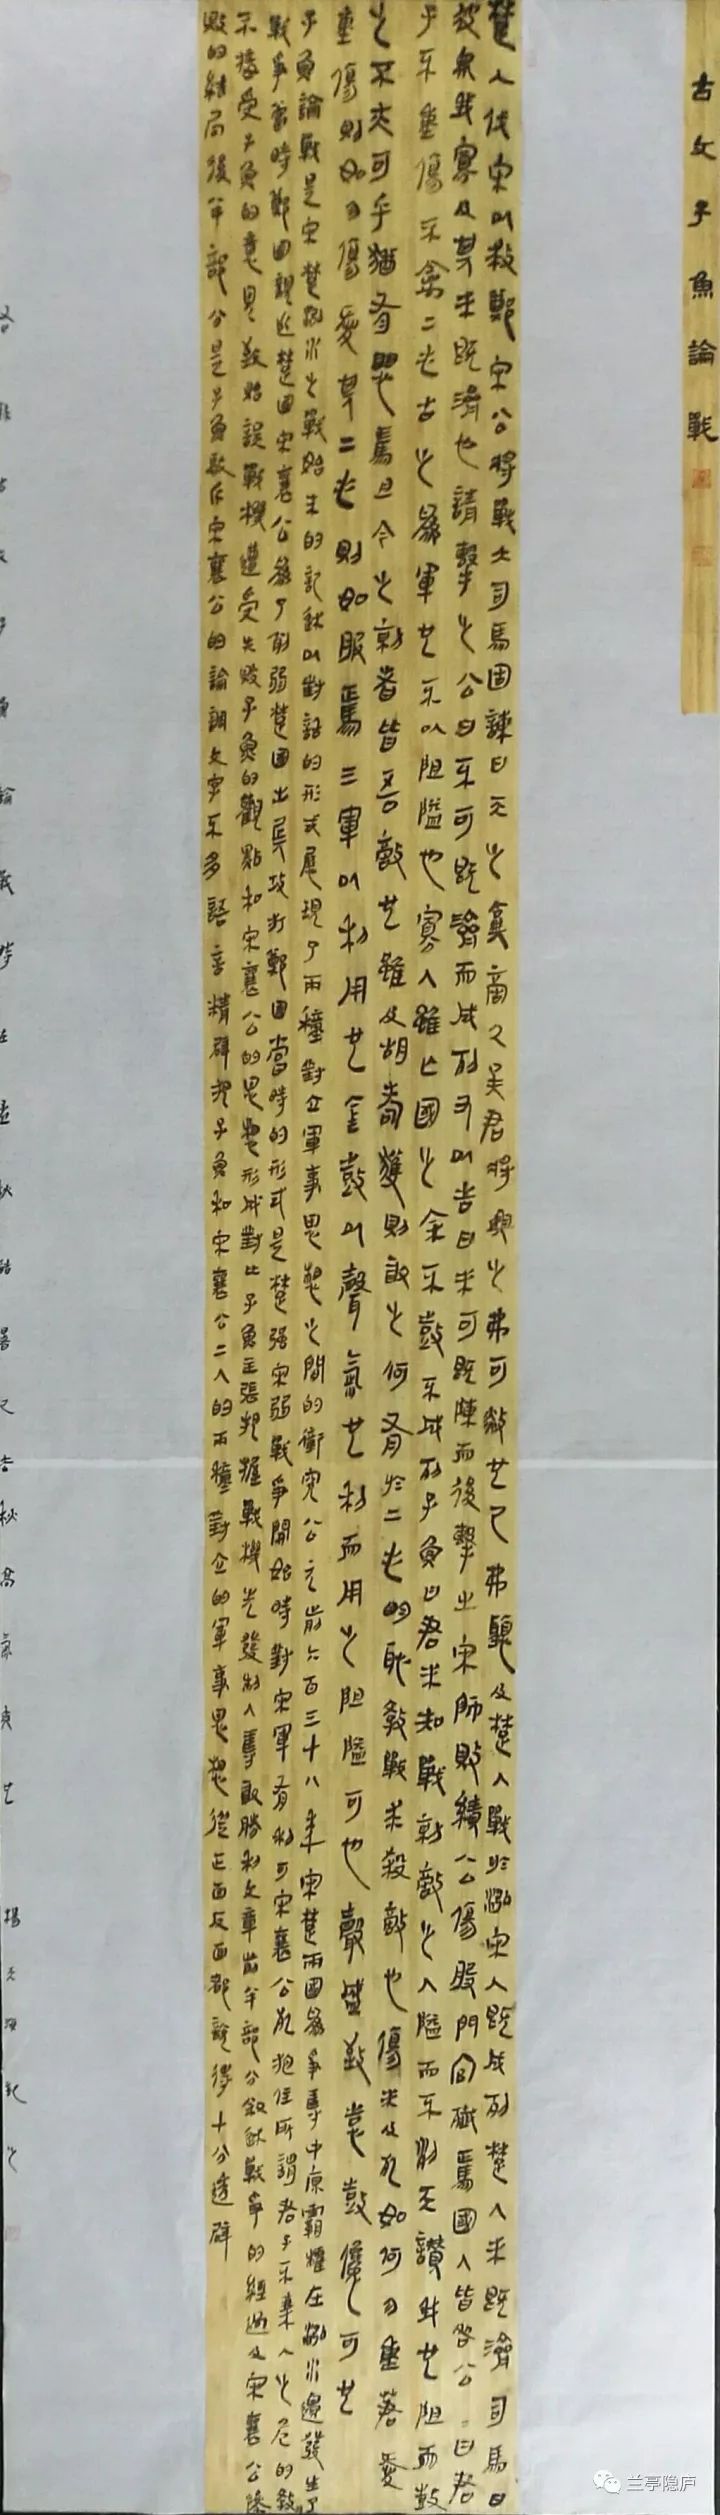 古文子魚論戰
楚人伐宋以救鄭宋公將戰大司馬固諫曰天之棄商久矣君將興之弗可赦也已弗聽及楚人戰於泓宋人既成列楚人未既濟司馬曰
彼眾我寡及其未既濟也請擊之公曰不可既濟而成列又以告曰未可既陳而後擊之宋師敗績公傷股門官殲焉國人皆咎公公曰君
子不重傷不禽二毛古之為軍也不以阻隘也寡人雖亡國之余不鼓不成列子魚曰君未知戰勍敵之人隘而不列天讚我也阻而鼓
之不亦可乎猶有懼焉且今之勍者皆吾敵也雖及胡耇獲則取之何有於二毛明恥教戰求殺敵也傷未及死如何勿重若愛
重傷則如勿傷愛其二毛則如服焉三軍以利用也金鼓以聲氣也利而用之阻隘可也聲盛致志鼓儳可也
子魚論戰是宋楚泓水之戰始末的記敘以對話的形式展現了兩種對立軍事思想之間的衝突公元前六百三十八年宋楚兩國為爭奪中原霸權在泓水邊發生了
戰爭當時鄭國親近楚國宋襄公為了削弱楚國出兵攻打鄭國當時的形式是楚强宋弱戰爭開始時對宋軍有利可宋襄公死抱住所謂君子不乘人之危的教
不接受子魚的意見致貽誤戰機遭受失敗子魚的觀點和宋襄公的思想形成對比子魚主張把握戰機先發制人奪取勝利文章前半部分敘述戰爭的經過及宋襄公慘
敗的結局後半部分是子魚駁斥宋襄公的論調文字不多語言精辟把子魚和宋襄公二人的兩種對立的軍事思想從正面反面都說得十分透辟
古文子魚論戰時在孟秋酷暑已去秋高氣爽也 楊天記之
兰亭隐庐